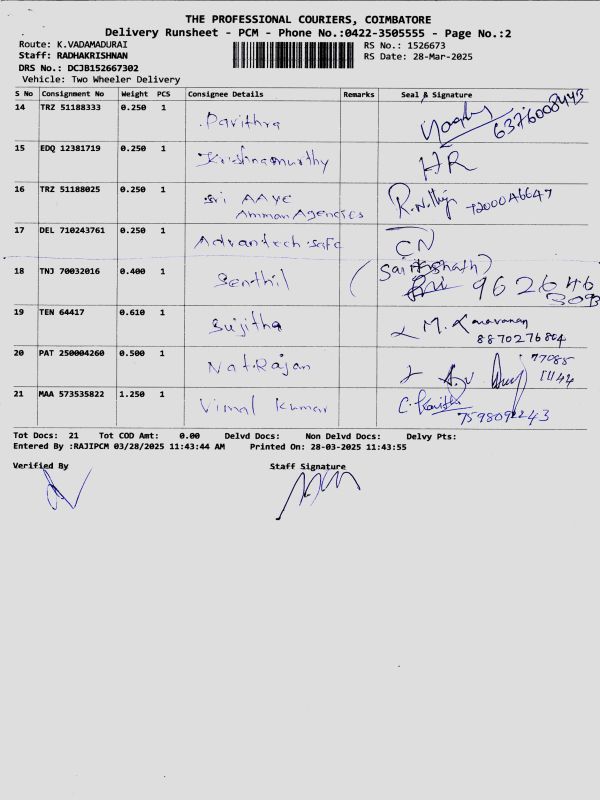 THE PROFESSIONAL COURIERS, COIMBATORE
Delivery Runsheet - PCM - Phone No.:0422-3505555 - Page No.:2
Route: K.VADAMADURAI RS No.: 1526673
Staff: RADHAKRISHNAN RS Date: 28-Mar-2025
DRS No.: DCJB152667302
Vehicle: Two Wheeler Delivery
S No Consignment No Weight PCS Consignee Details Remarks Seal & Signature
14 TRZ 51188333 0.250 1 Pavithra 6376008443
15 EDQ 12381719 0.250 1 Krishnamurthy HR
16 TRZ 51188025 0.250 1 Sri AAYE
Amman Agencies
17 DEL 710243761 0.250 1 Advantech safe CN
18 TNJ 70032016 0.400 1 Senthil 962646
309
19 TEN 64417 0.610 1 Sujitha M.
8870276804
20 PAT 250004260 0.500 1 NatRajan 77085
21 MAA 573535822 1.250 1 Vimal Kumar
Tot Docs: 21 Tot COD Amt: 0.00 Delvd Docs: Non Delvd Docs: Delvy Pts:
Entered By :RAJIPCM 03/28/2025 11:43:44 AM Printed On: 28-03-2025 11:43:55
Verified By Staff Signature